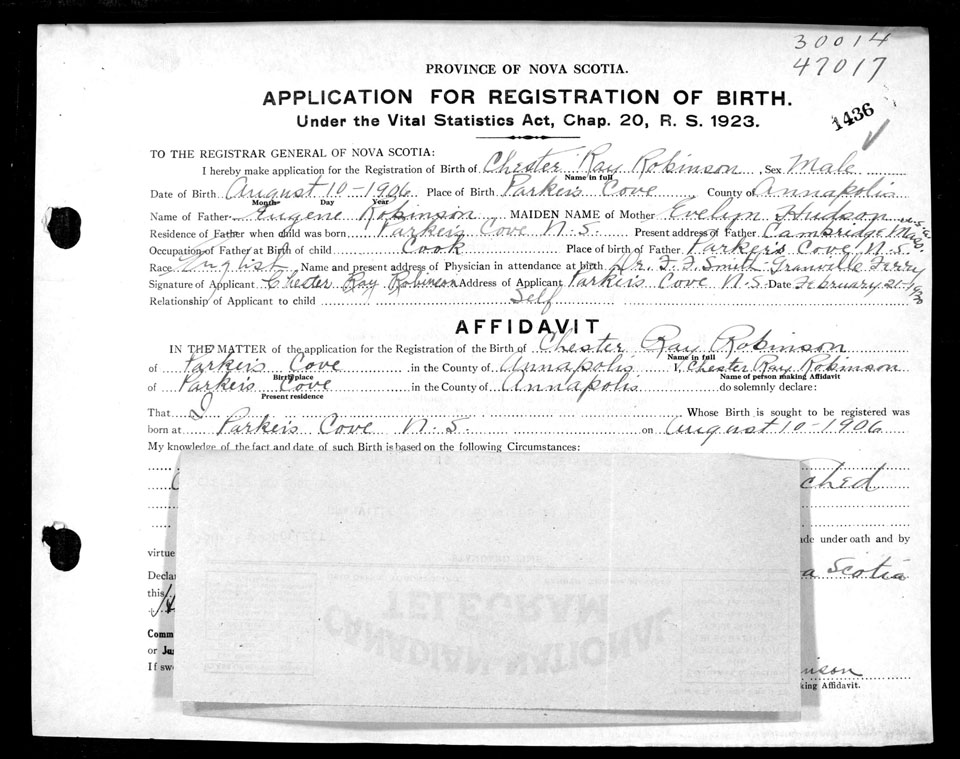 30014
47017
PROVINCE OF NOVA SCOTIA.
APPLICATION FOR REGISTRATION OF BIRTH.
1436
Under the Vital Statistics Act, Chap. 20, R. S. 1923.
TO THE REGISTRAR GENERAL OF NOVA SCOTIA:
I hereby make application for the Registration of Birth of Chester Ray Robinson Sex Male
Name in full
Date of Birth August 10-1906 Place of Birth Parker's Cove County of Annapolis
Month Day Year
Name of Father Eugene Robinson MAIDEN NAME of Mother Evelyn Hudson
Residence of Father when child was born Parker's Cove N.S. Present address of Father Cambridge Mass U.S.A.
Occupation of Father at Birth of child Cook Place of birth of Father Parker's Cove N.S.
Race English Name and present address of Physician in attendance at birth Dr. F. F. Smith Granville Ferry
Signature of Applicant Chester Ray Robinson Address of Applicant Parker's Cove N.S. Date February 21-1930
Relationship of Applicant to child Self
AFFIDAVIT
IN THE MATTER of the application for the Registration of the Birth of Chester Ray Robinson
Name in full
of Parker's Cove in the County of Annapolis Chester Ray Robinson
Birthplace Name of person making Affidavit
of Parker's Cove in the County of Annapolis do solemnly declare:
Present residence
That I Whose Birth is sought to be registered was
born at Parker's Cove N.S. on August 10-1906
My knowledge of the fact and date of such Birth is based on the following Circumstances:
ched
ade under oath and by
virtue
Declar a Scotia
this
Comm
or Ju
If sw inson
king Affidavit.
STANDARD TIME
TELEGRAM
CANADIAN NATIONAL